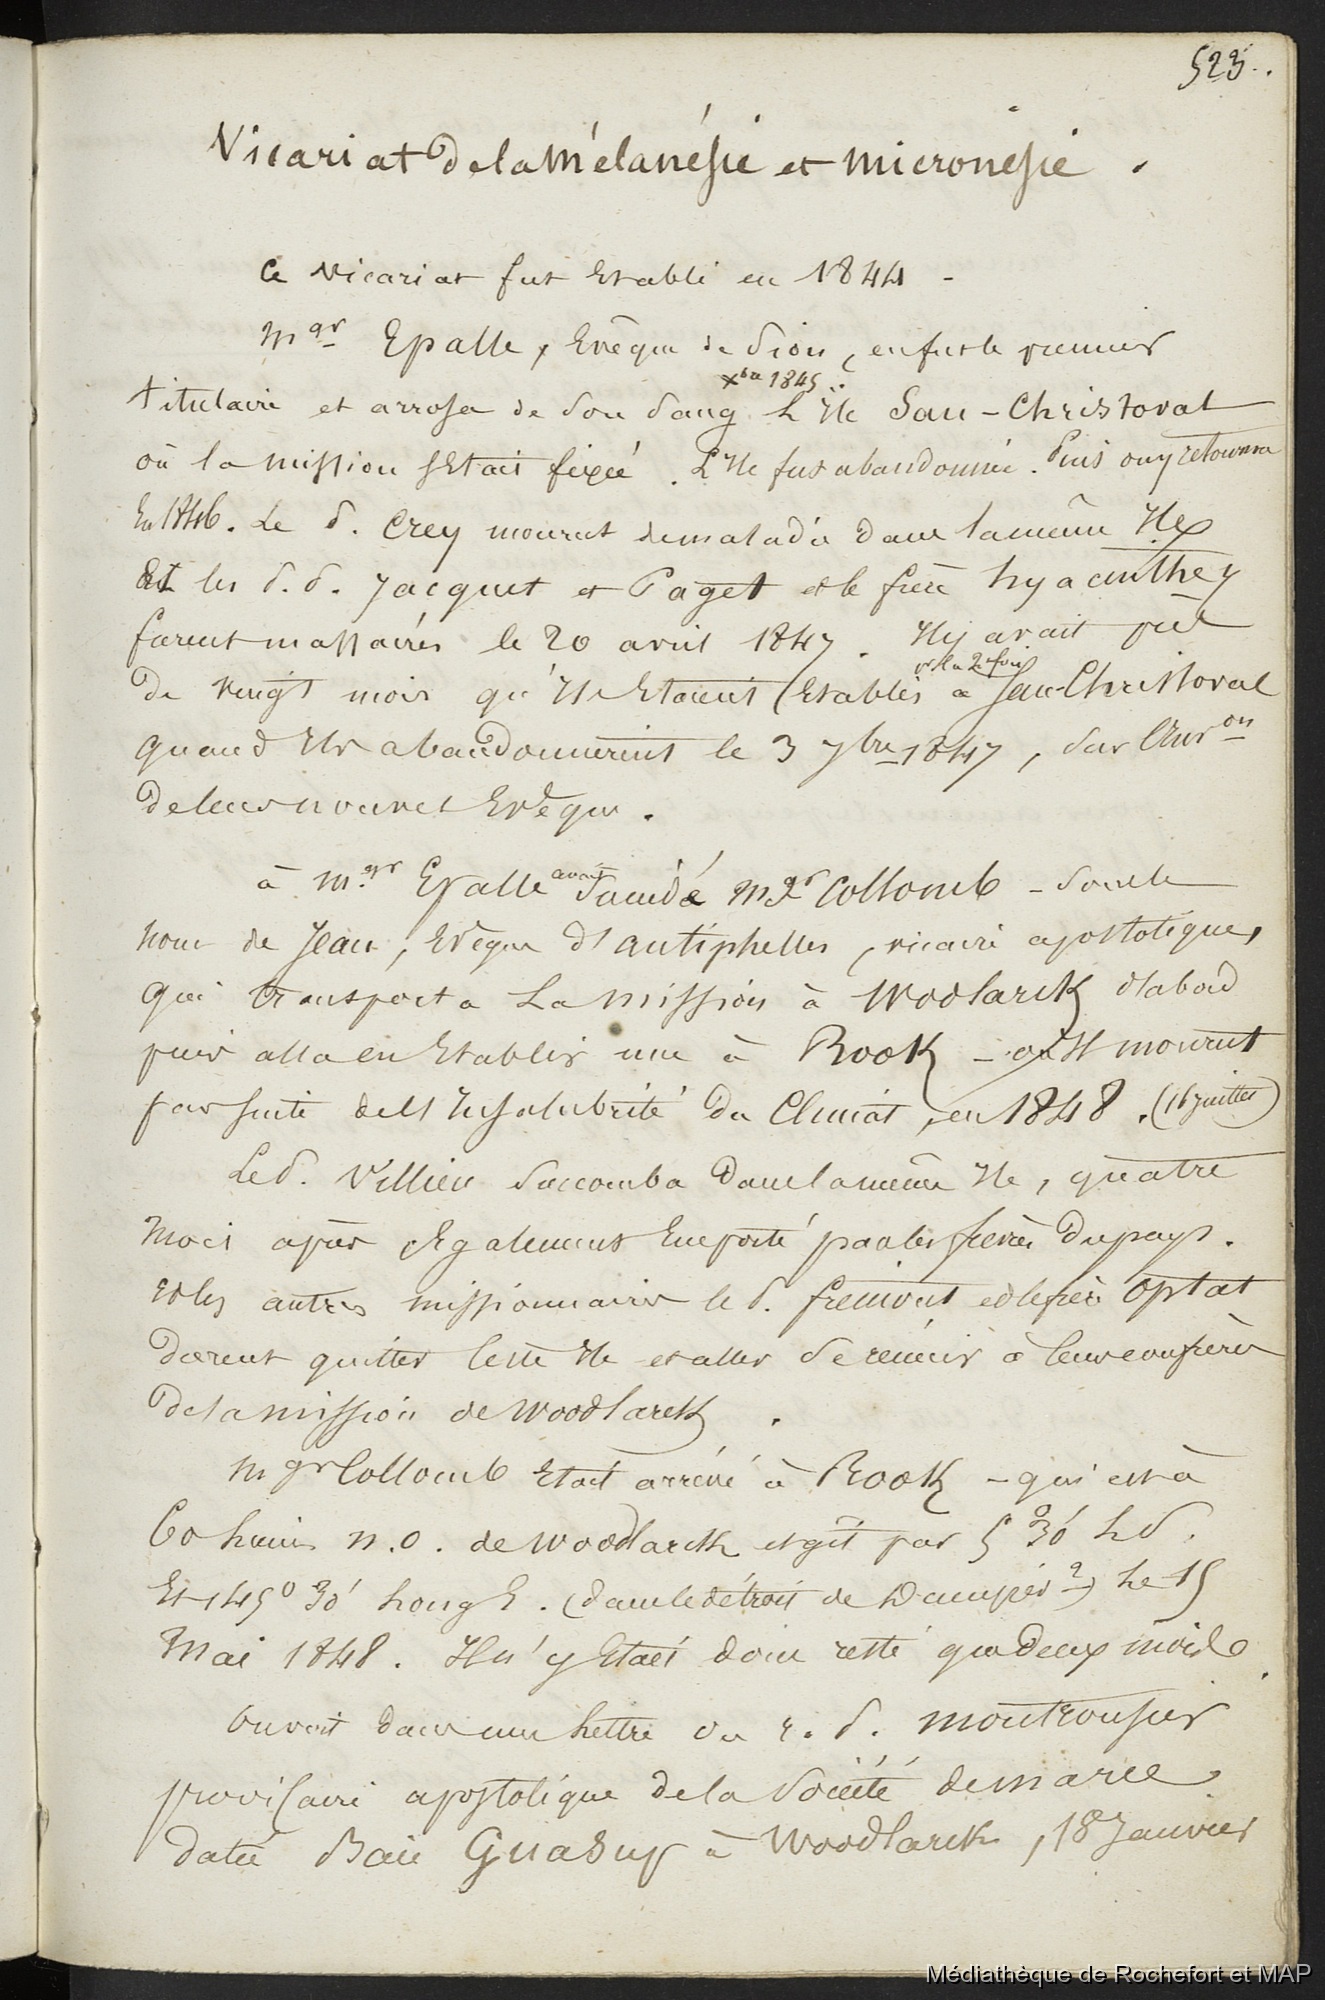 523.
Vicariat de la Mélanésie et micronésie.
Ce vicariat fut Etabli en 1844 -
Mgr Epalle, Evêque de Sion, en fut le premier
Xbre 1845
titulaire et arrosa de son sang L'Ile San-Christoval
où la mission s'Etait fixée. L'Ile fut abandonnée. Puis on y retourna
En 1846. Le P. Crey mourut de maladie dans la même Ile
Et les P.P. Jacquet et Paget et le frère hyacinthe
furent massacrés le 20 avril 1847. Il y avait
pr la 2e fois
de vingt mois qu'Ils Etaient Etablis à San-Christoval
quand Ils abandonnèrent le 3 7bre 1847, sur
de leur nouvel Evêque.
à Mgr Epalle avait succédé Mgr Collomb - sous le
nom de Jean, Evêque d'antiphelles, vicaire apostolique,
qui transporta La mission à Woodlarck d'abord
puis alla en Etablir une à Rook - où Il mourut
par suite de l'Insalubrité du Climat, en 1848. (16 juillet)
Le P. Villien succomba dans la même Ile, quatre
mois après Egalement Emporté par les fièvres du pays.
Et les autres missionnaires le P. fremont et le frère Optat
durent quitter cette Ile et aller se réunir à leurs confrères
de la mission de Woodlarck.
Mgr Collomb Etait arrivé à Rook - qui est à
60 lieues n.o. de Woodlarck et gît par 5° 30' L S.
Et 145° 30' Long E. (dans le détroit de Dampier?) Le 15
Mai 1848. Il n'y Etait donc resté que deux mois
On voit dans une Lettre du r. P. Montrousier
provicaire apostolique de la Société de marie
datée Baie Guasup à Woodlarck, 18 Janvier
Médiathèque de Rochefort et MAP